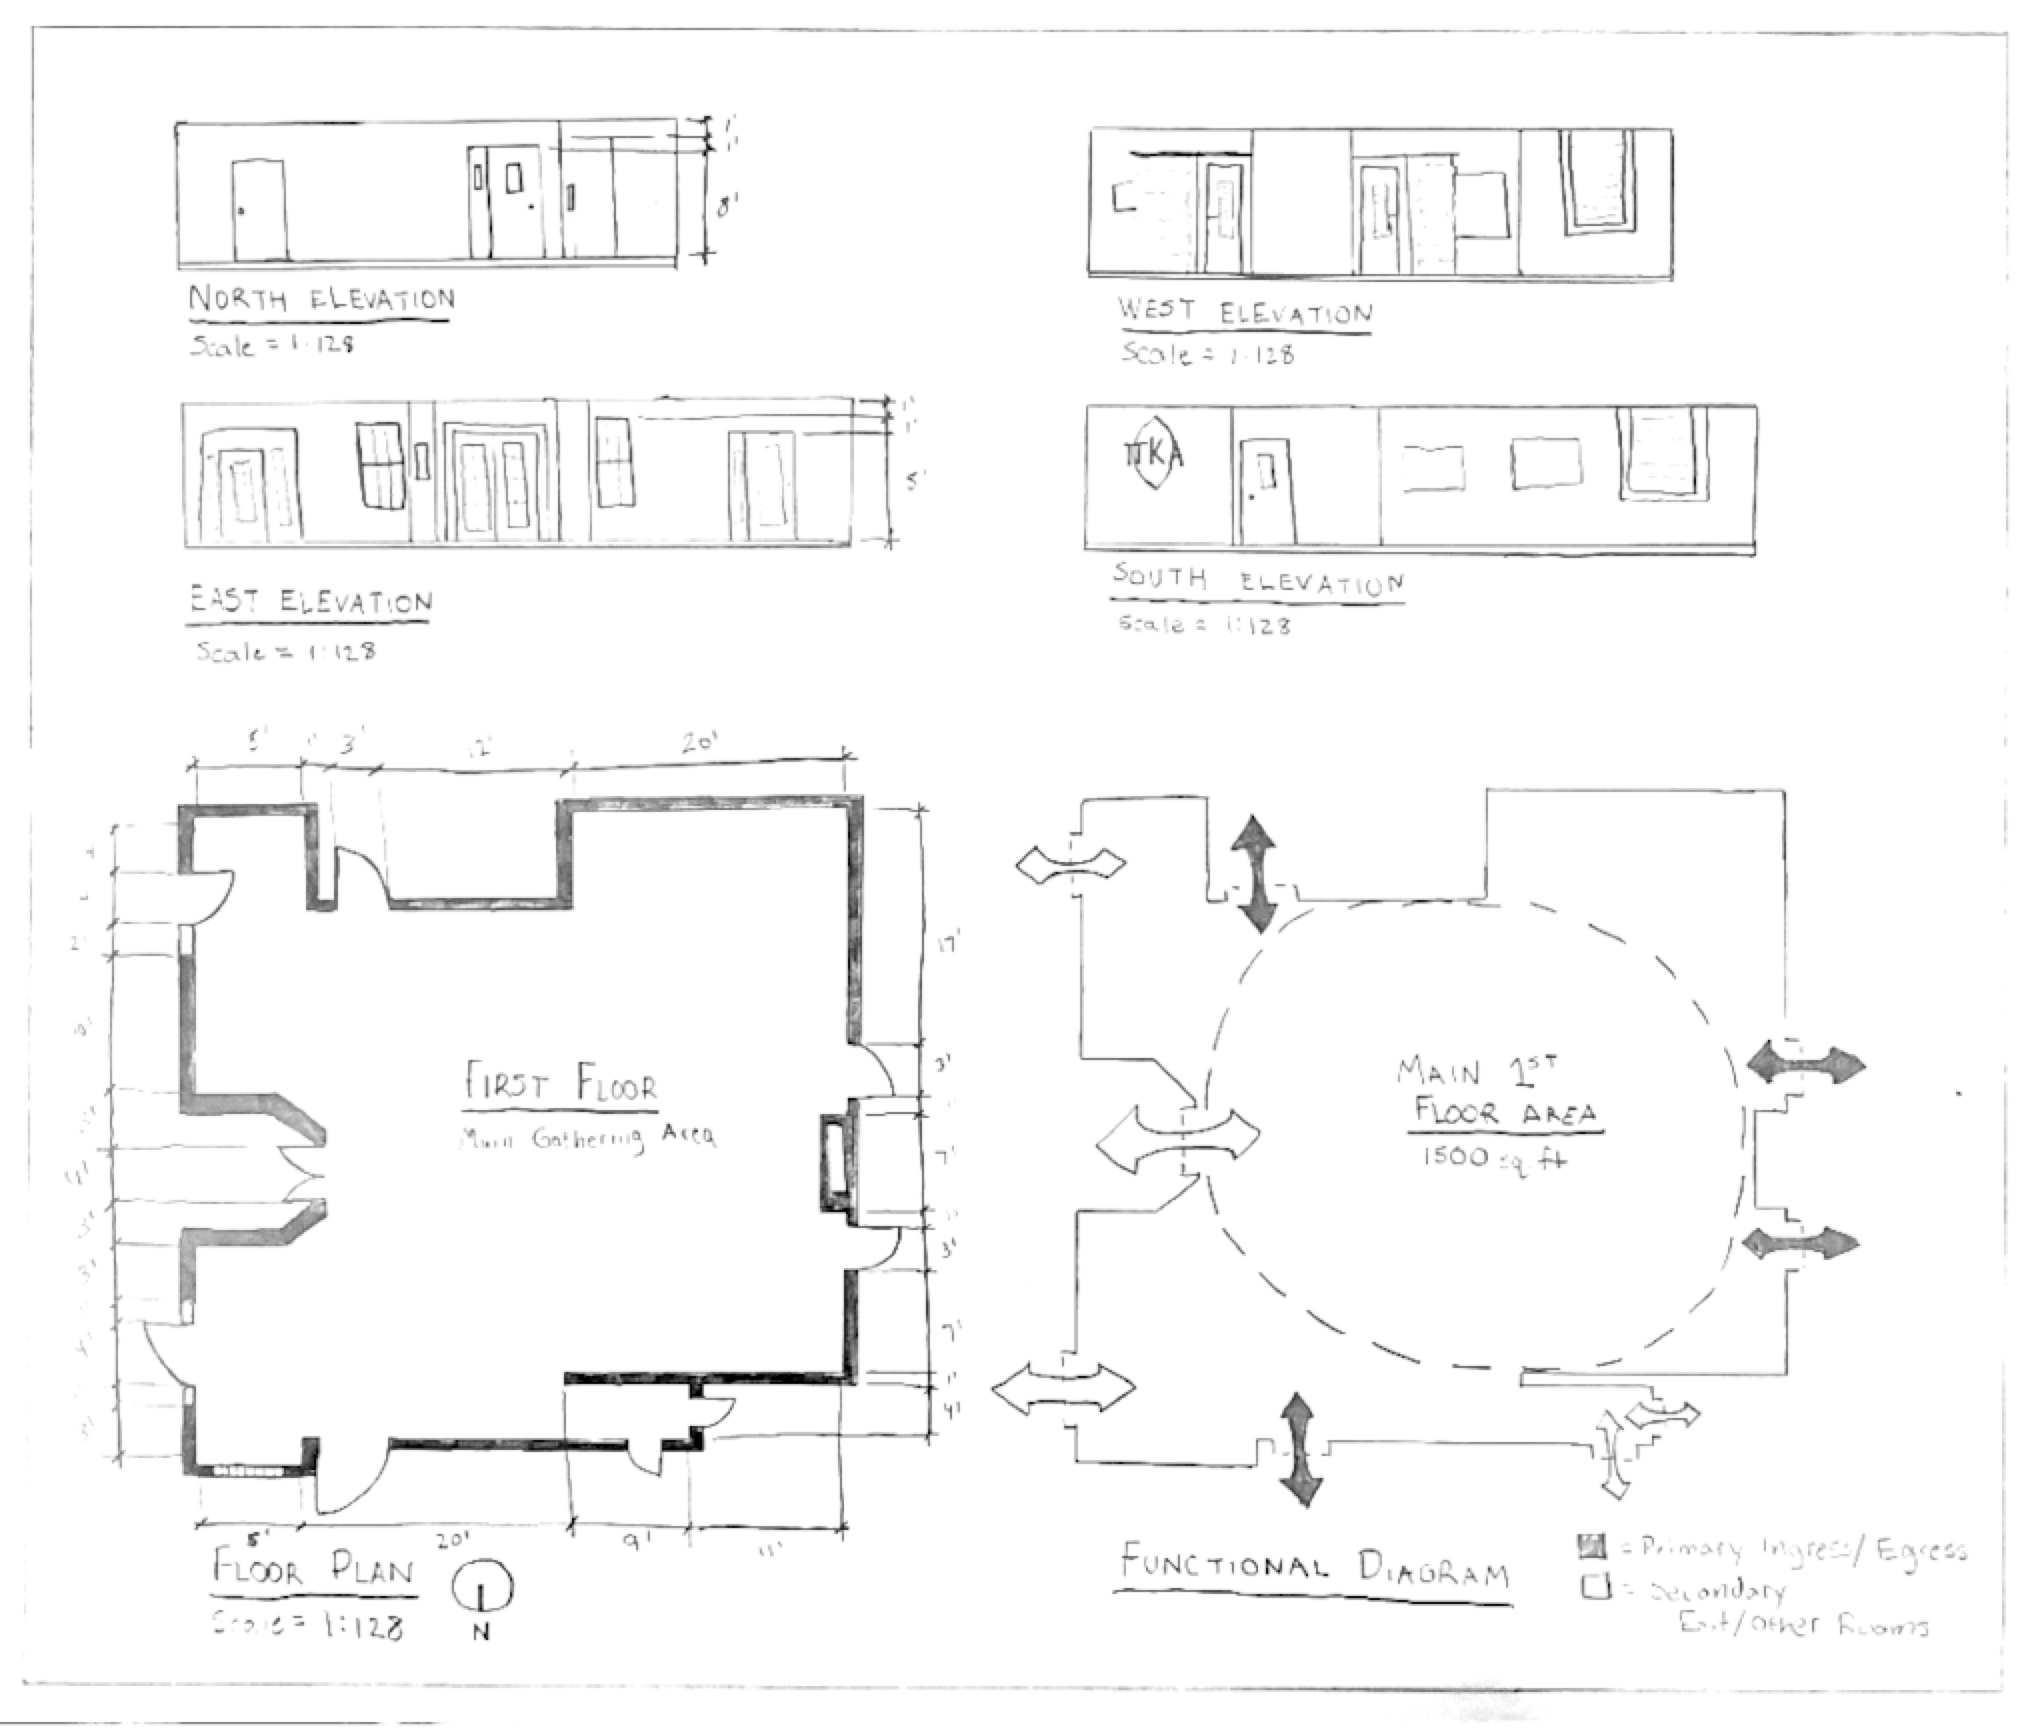 1'
1'
8'
NORTH ELEVATION
Scale = 1:128
WEST ELEVATION
Scale = 1:128
1'
1'
EAST ELEVATION
Scale = 1:128
ΠKA
SOUTH ELEVATION
Scale = 1:128
5' 1' 3' 12' 20'
2'
17'
3'
7'
3'
7'
1'
4'
FIRST FLOOR
Main Gathering Area
5' 20' 9' 11'
FLOOR PLAN
Scale = 1:128
N
MAIN 1ST
FLOOR AREA
1500 sq ft
FUNCTIONAL DIAGRAM
= Primary Ingress/Egress
= Secondary
Exit/Other Rooms